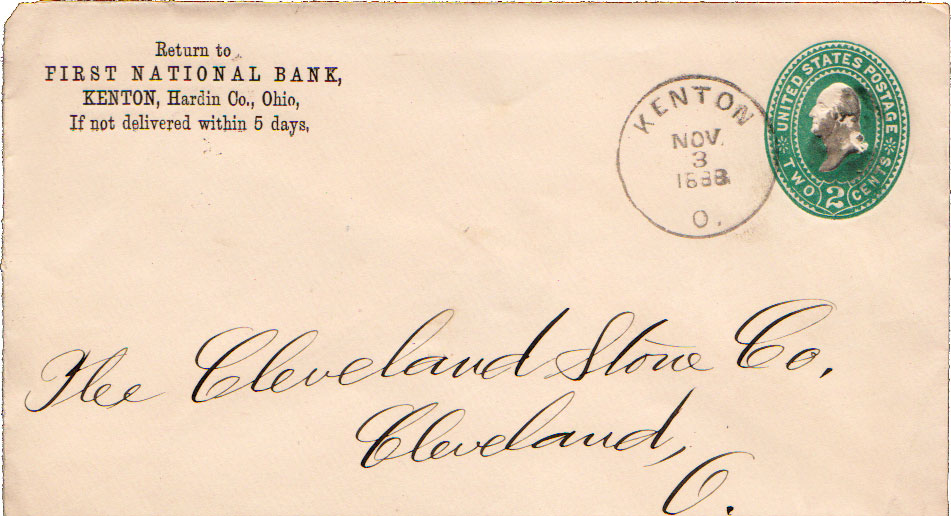 Return to
FIRST NATIONAL BANK,
KENTON, Hardin Co., Ohio,
If not delivered within 5 days,
KENTON
NOV.
3
1888
O.
UNITED STATES POSTAGE
TWO 2 CENTS
The Cleveland Stone Co.
Cleveland,
O.